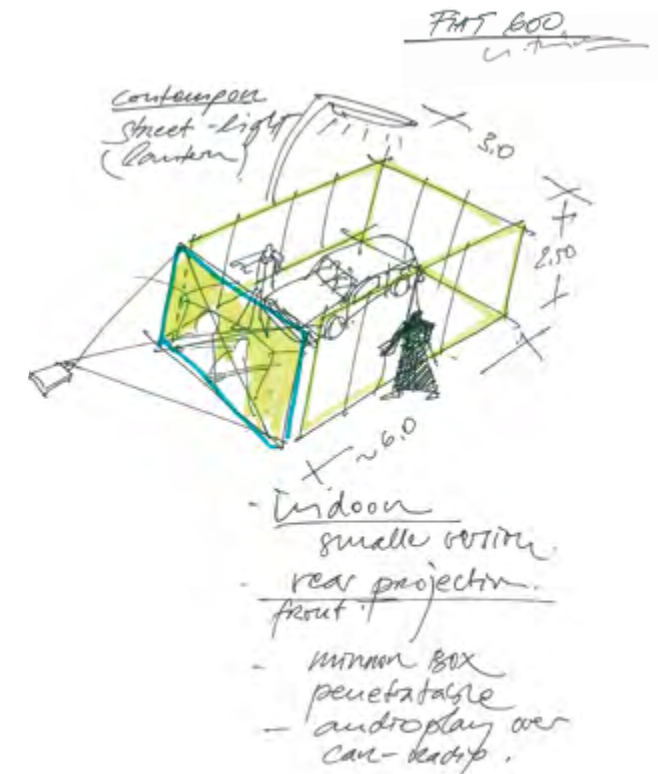 FIAT 600
contempor
street-light
(lantern)
3.0
2.50
~ 6.0
- Indoor
smaller version.
- rear projection.
front
- mirror BOX
penetratable
- audioplay over
car-radio.